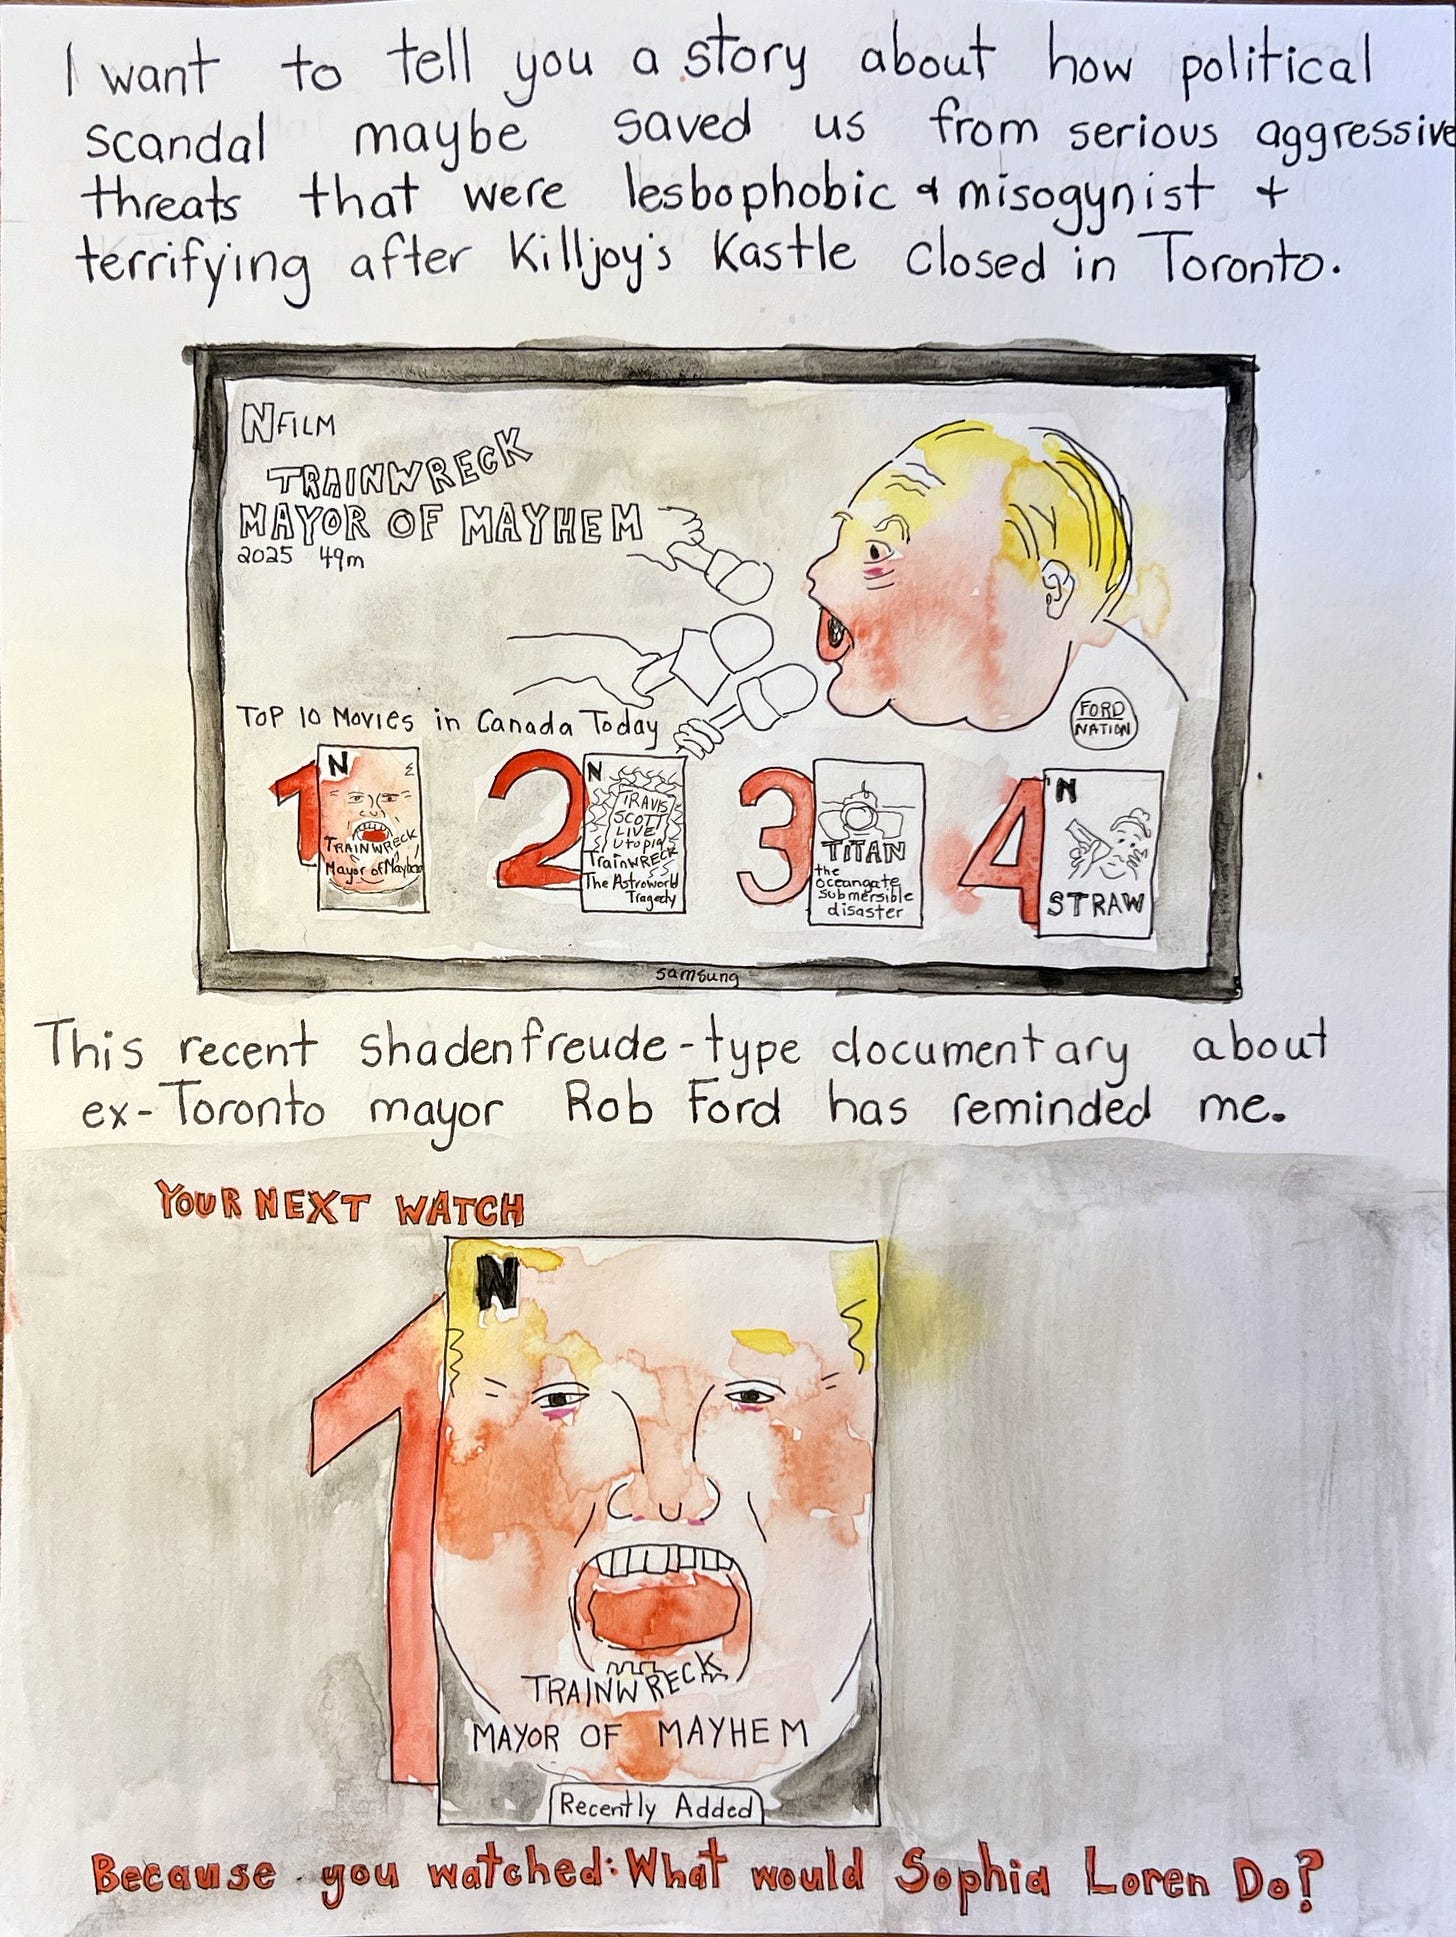 I want to tell you a story about how political
scandal maybe saved us from serious aggressive
threats that were lesbophobic & misogynist +
terrifying after Killjoy's Kastle closed in Toronto.
N FILM
TRAINWRECK
MAYOR OF MAYHEM
2025 49m
TOP 10 Movies in Canada Today
FORD
NATION
1
N
TRAINWRECK
Mayor of Mayhem
2
N
TRAVIS
SCOTT
LIVE
Utopia
TrainWRECK
The Astroworld
Tragedy
3
TITAN
the
oceangate
submersible
disaster
4
N
STRAW
samsung
This recent shadenfreude-type documentary about
ex-Toronto mayor Rob Ford has reminded me.
YOUR NEXT WATCH
1
N
TRAINWRECK
MAYOR OF MAYHEM
Recently Added
Because you watched: What would Sophia Loren Do?